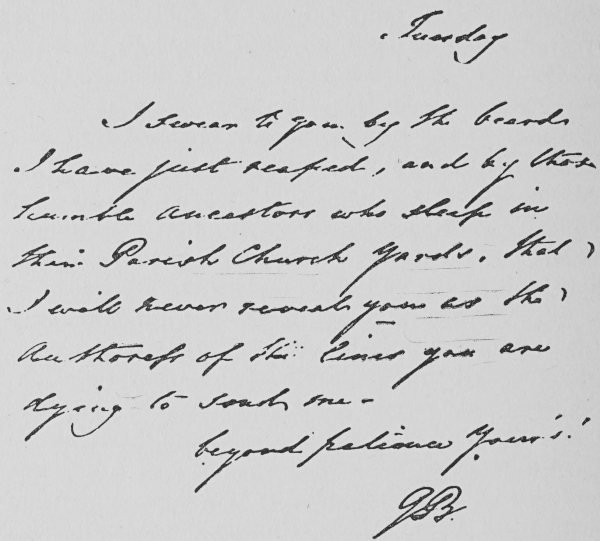 Tuesday
I swear to you, by the beards
I have just reaped, and by those
humble ancestors who sleep in
their Parish Church Yards, that
I will never reveal you as the
Authoress of the lines you are
dying to send me –
beyond patience Yours!
GB.